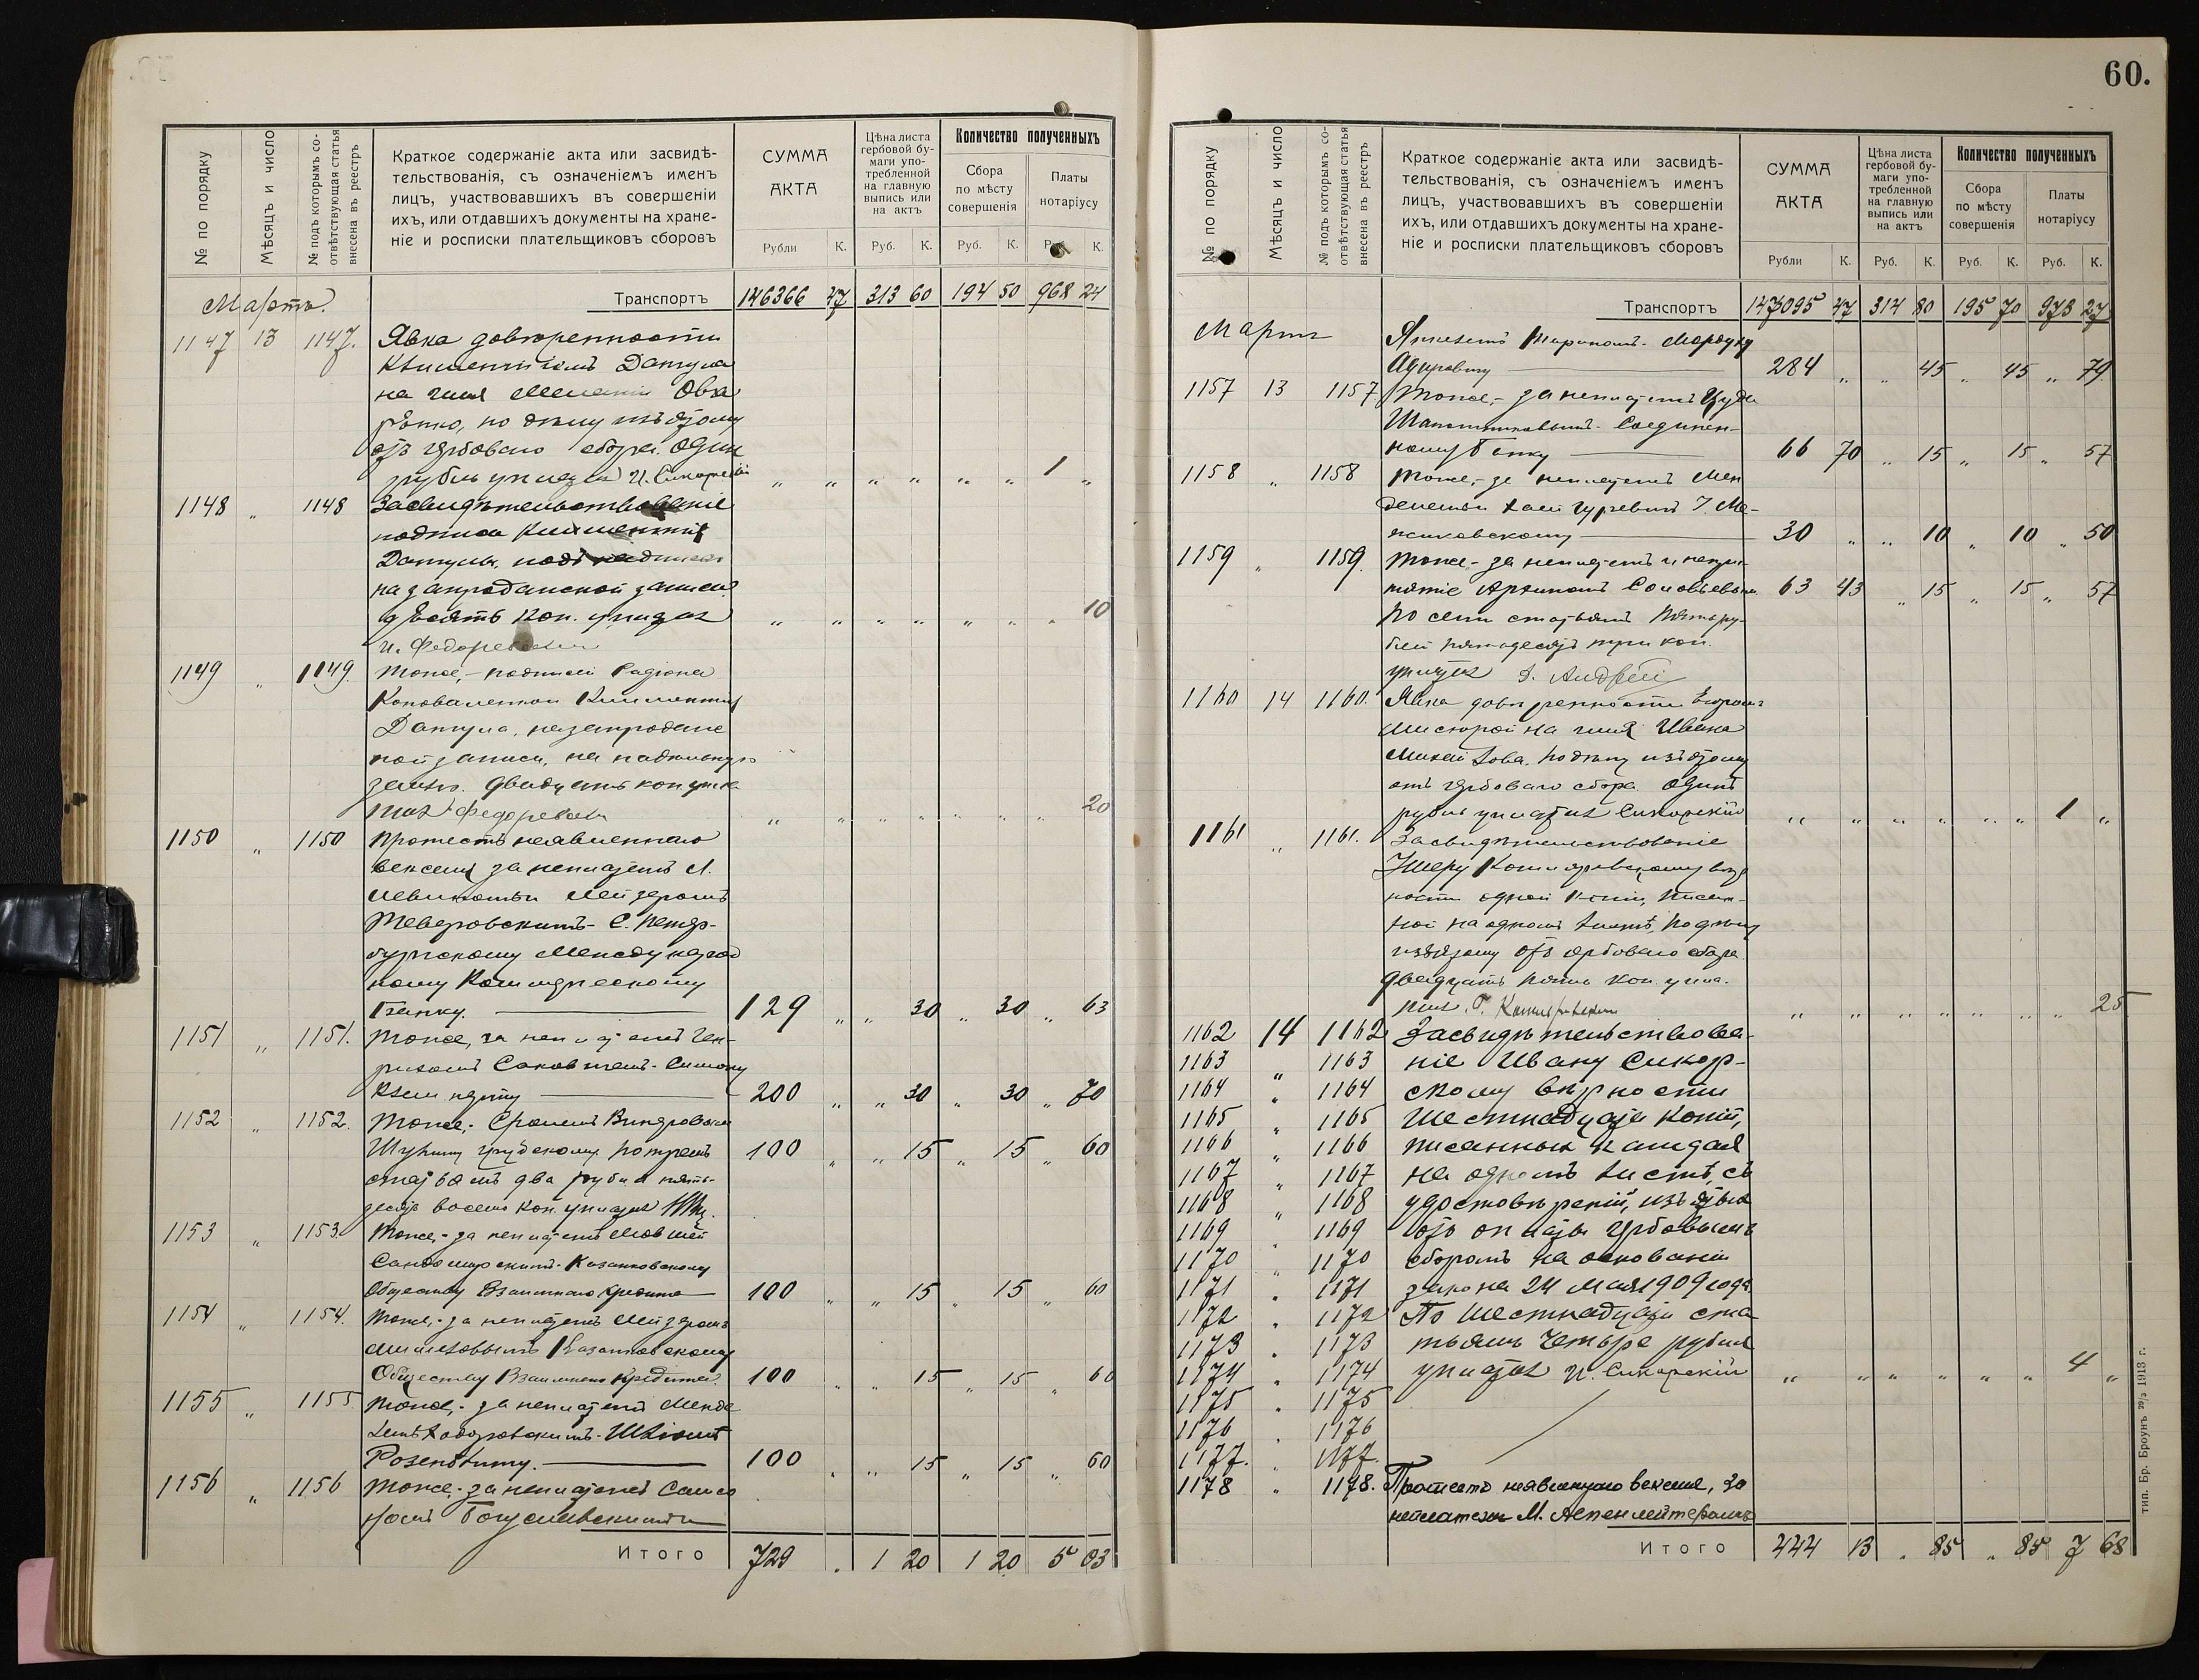 № по порядку
Мѣсяцъ и число
№ подъ которымъ со-
отвѣтствующая статья
внесена въ реестръ
Краткое содержаніе акта или засвидѣ-
тельствованія, съ означеніемъ именъ
лицъ, участвовавшихъ въ совершеніи
ихъ, или отдавшихъ документы на хране-
ніе и росписки плательщиковъ сборовъ
СУММА
АКТА
Рубли К.
Цѣна листа
гербовой бу-
маги упо-
требленной
на главную
выпись или
на актъ
Руб. К.
Количество полученныхъ
Сбора
по мѣсту
совершенія
Руб. К.
Платы
нотаріусу
К.
Мартъ.
Транспортъ 146366 47 313 60 194 50 968 24
1147 13 1147. Явка довѣренности
Климентіемъ Данула
на имя
по дѣлу изъятому
отъ гербоваго сбора. Одинъ
рубль уплатилъ И. Сикорскій „ „ „ „ „ „ 1 „
1148 „ 1148 Засвидѣтельствованіе
подписи Климентія
Данула, подъ
на запроданской записи
десять коп. уплатил „ „ „ „ „ „ „ 10
и. Федоревскій
1149 „ 1149. Тоже, - подписей Радіона
Коноваленкои Климентія
Данула, на запродан
ной записи, на надѣльную
землю. двадцать коп. упла
тил Федоревскій „ „ „ „ „ „ „ 20
1150 „ 1150 Протестъ неявленнаго
векселя за неплатежъ
Лейзеромъ
Тверовскимъ - С. Петер-
бургскому Международ
ному Коммерческому
Банку. 129 „ „ 30 „ 30 „ 63
1151 „ 1151. Тоже, за неплатежъ Ген-
рихомъ
200 „ „ 30 „ 30 „ 70
1152 „ 1152. Тоже,
по тремъ 100 „ „ 15 „ 15 „ 60
статьямъ два рубля пять-
десятъ восемь коп. уплатил
1153 „ 1153. Тоже, - за неплатежъ Мовшей
Сандомирскимъ - Казанковскому
Обществу Взаимнаго Кредита 100 „ „ 15 „ 15 „ 60
1154 „ 1154. Тоже, - за неплатежъ Лейзеромъ
Казанковскому
Обществу Взаимнаго Кредита. 100 „ „ 15 „ 15 „ 60
1155 „ 1155 Тоже, - за неплатежъ Менде
лемъ
Розенблиту. 100 „ „ 15 „ 15 „ 60
1156 „ 1156 Тоже, - за неплатежъ Само
йломъ Богуславскимъ
Итого 729 . 1 20 1 20 5 03
60.
№ по порядку
Мѣсяцъ и число
№ подъ которымъ со-
отвѣтствующая статья
внесена въ реестръ
Краткое содержаніе акта или засвидѣ-
тельствованія, съ означеніемъ именъ
лицъ, участвовавшихъ въ совершеніи
ихъ, или отдавшихъ документы на хране-
ніе и росписки плательщиковъ сборовъ
СУММА
АКТА
Рубли К.
Цѣна листа
гербовой бу-
маги упо-
требленной
на главную
выпись или
на актъ
Руб. К.
Количество полученныхъ
Сбора
по мѣсту
совершенія
Руб. К.
Платы
нотаріусу
Руб. К.
Транспортъ 147095 47 314 80 195 70 973 27
Мартъ
284 „ „ 45 „ 45 „ 79
1157 13 1157 Тоже, - за неплатежъ
Соединен-
ному Банку 66 70 „ 15 „ 15 „ 57
1158 „ 1158 Тоже, - за неплатежъ Мен
делемъ
30 „ „ 10 „ 10 „ 50
1159 „ 1159. Тоже - за неплатежъ и непри-
нятіе Соловьевымъ 63 43 „ 15 „ 15 „ 57
По семи статьямъ пять ру-
блей пятьдесятъ три коп.
уплатил
1160 14 1160. Явка довѣренности
на имя Ивана
по дѣлу изъятому
отъ гербоваго сбора. Одинъ
рубль уплатил Сикорскій „ „ „ „ „ „ 1 „
1161 „ 1161. Засвидѣтельствованіе
вѣр
ности одной копіи, писан-
ной на одномъ листѣ, по дѣлу
изъятому отъ гербоваго сбора.
двадцать пять коп. упла-
тил. „ „ „ „ „ „ „ 25
1162 14 1162 Засвидѣтельствова-
1163 „ 1163 ніе Ивану Сикор-
1164 „ 1164 скому вѣрности
1165 „ 1165 шестнадцати копій,
1166 „ 1166 писанных каждая
1167 „ 1167 на одномъ листѣ, съ
1168 „ 1168 удостовѣреній, изъятых
1169 „ 1169 отъ оплаты гербовымъ
1170 „ 1170 сборомъ на основаніи
1171 „ 1171 закона 24 мая 1909 года.
1172 „ 1172 По шестнадцати ста
1173 „ 1173 тьямъ четыре рубля
1174 „ 1174 уплатил И. Сикорскій „ „ „ „ „ „ 4 „
1175 „ 1175
1176 „ 1176
1177. „ 1177.
1178 „ 1178. Протестъ неявленнаго векселя, за
неплатежъ М. Аспенлейтеромъ
Итого 444 13 „ 85 „ 85 7 68
тип. Бр. Броунъ 29/3 1913 г.